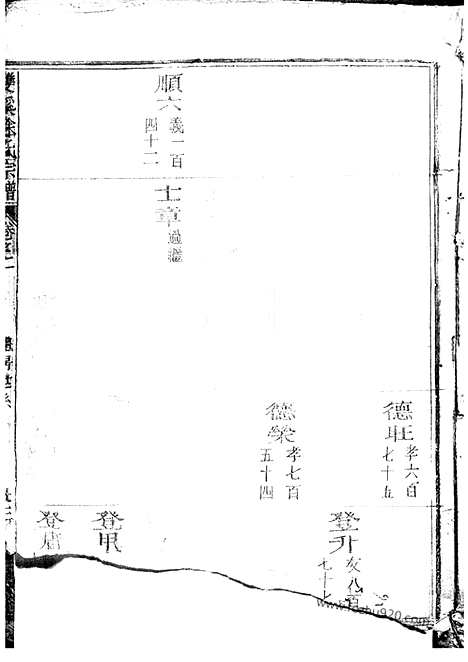 德旺 孝六百七十五
登升 友八百七十七
德榮 孝七百五十四
順六 義一百四十二
士章 過繼
登甲
登店
雙溪徐氏宗譜 卷之二